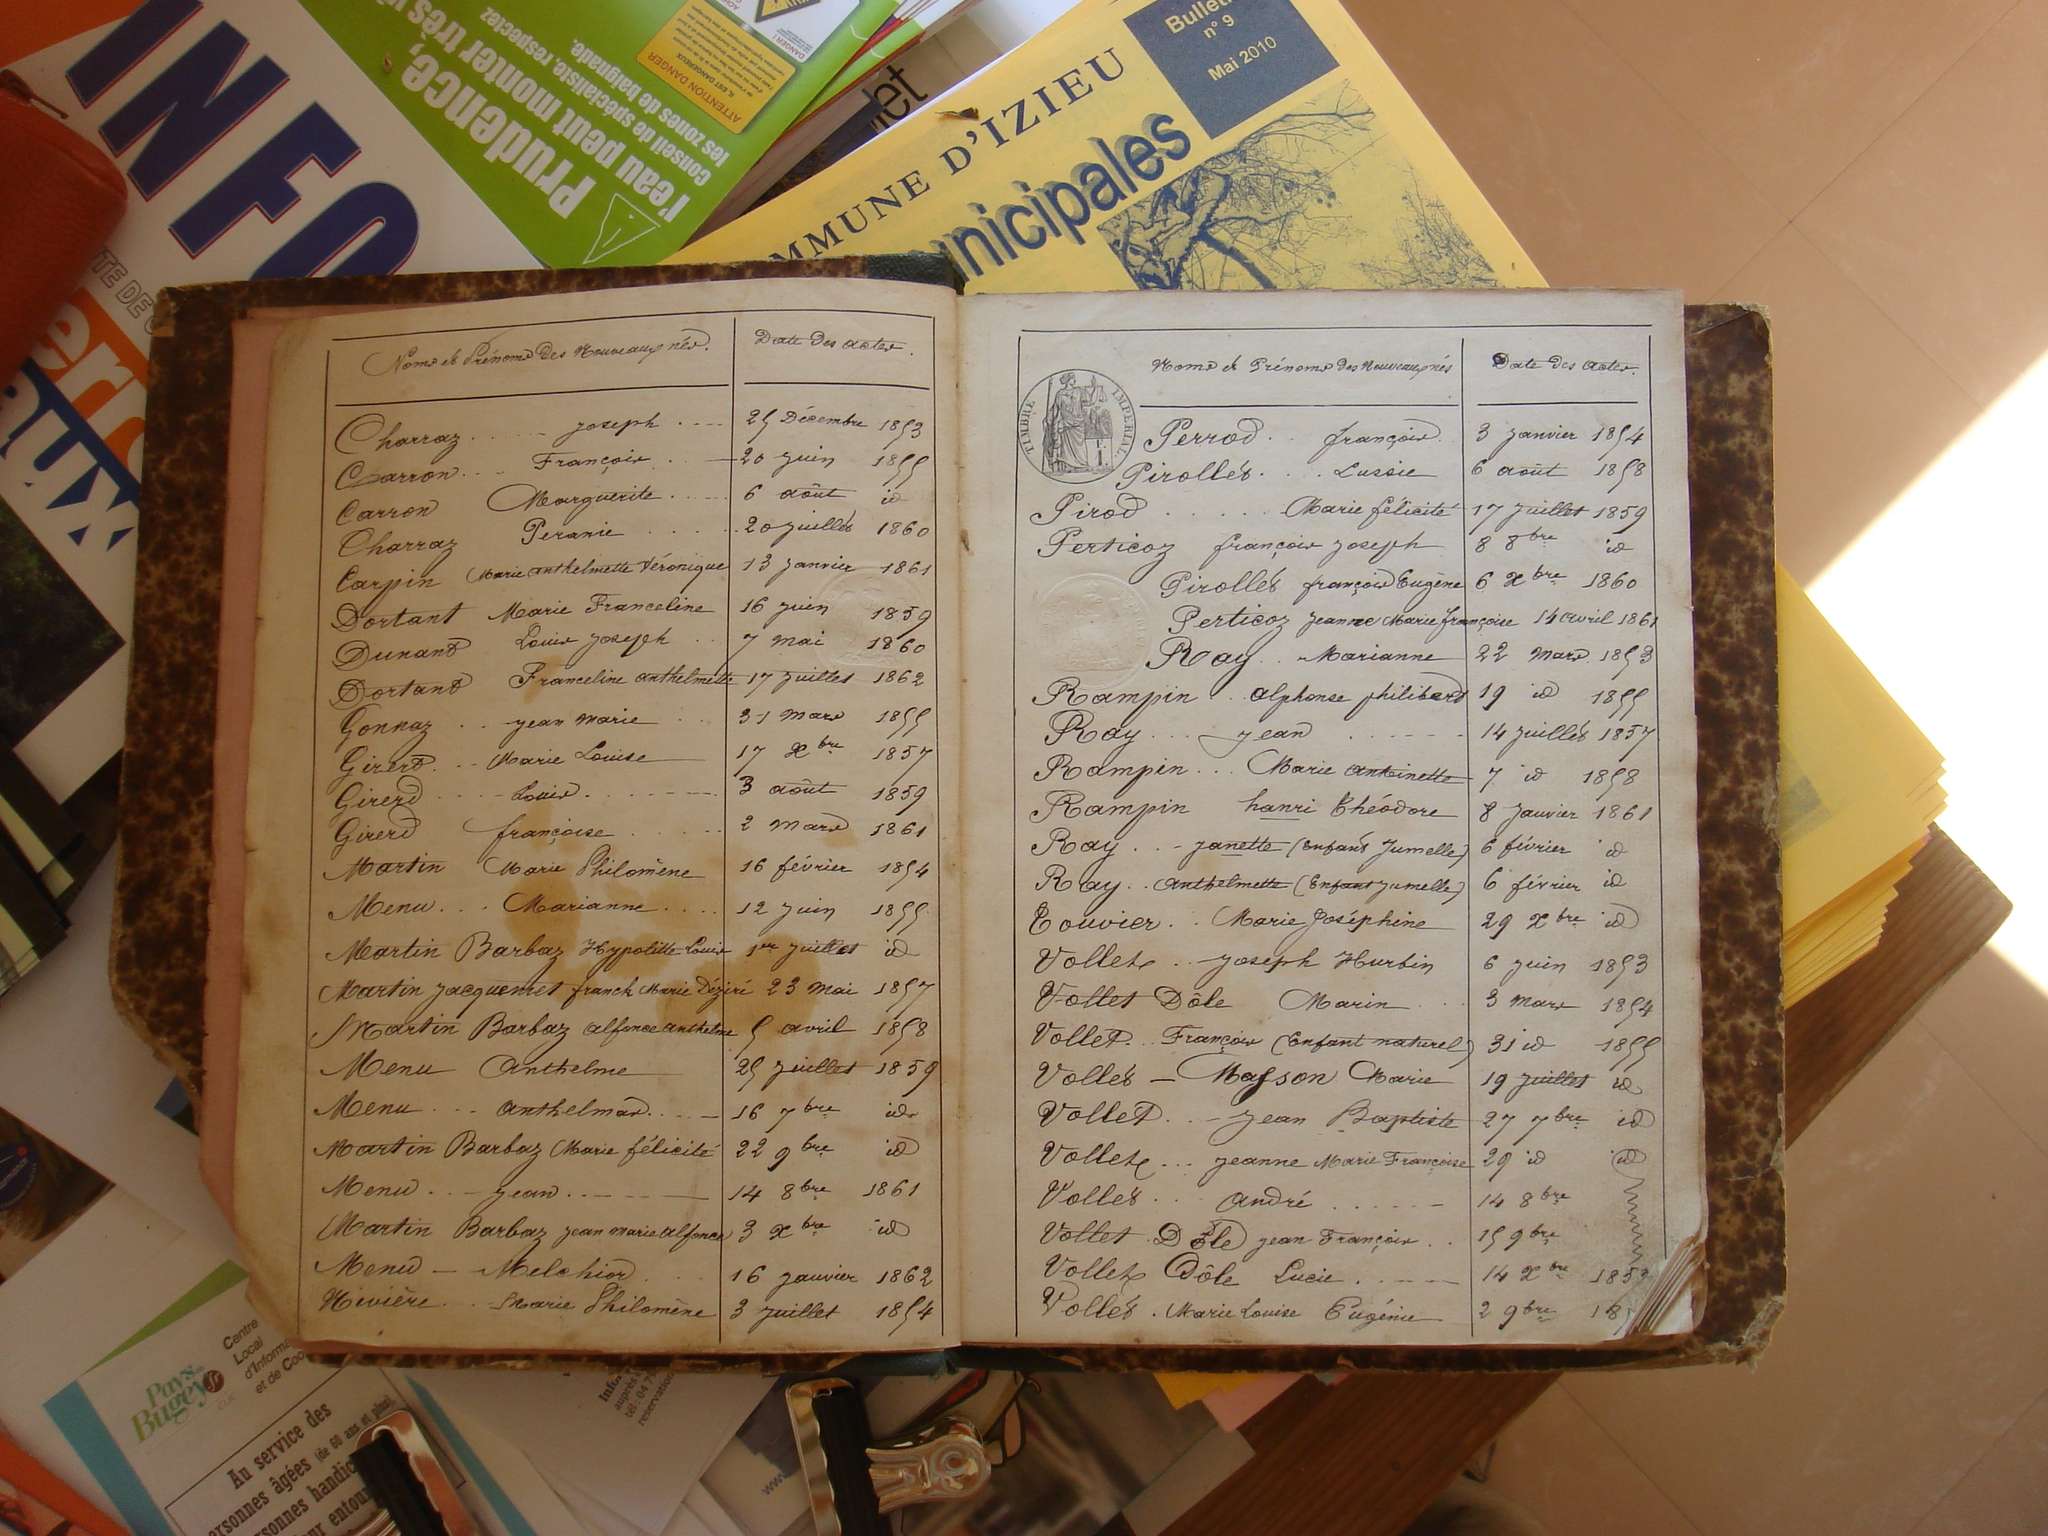 INFO
Prudence,
l'eau peut monter très v
conseil de spécialiste, respectez
les zones de baignade.
ATTENTION DANGER
DANGER!
Bullet
n° 9
Mai 2010
MMUNE D'IZIEU
unicipales
Noms et Prénoms des Nouveaux nés.
Date des actes.
Charraz Joseph 25 Décembre 1853
Carron François 20 juin 1855
Carron Marguerite 6 août id
Charraz Peranie 20 juillet 1860
Carpin Marie anthelmette Véronique 13 janvier 1861
Dortant Marie Franceline 16 juin 1859
Dunand Louis Joseph 7 mai 1860
Dortand Franceline anthelmette 17 juillet 1862
Gonnaz jean marie 31 mars 1855
Girerd Marie Louise 17 xbre 1857
Girerd Louis 3 août 1859
Girerd françoise 2 mars 1861
Martin Marie Philomène 16 février 1854
Menu Marianne 12 juin 1855
Martin Barbaz Hypolitte Louis 1er juillet id
Martin Jacquemet franck Marie Déziré 23 mai 1857
Martin Barbaz alfonce anthelme 5 avril 1858
Menu Anthelme 25 juillet 1859
Menu anthelmar 16 7bre id
Martin Barbaz Marie félicité 22 9bre id
Menu jean 14 8bre 1861
Martin Barbaz jean marie alfonce 3 xbre id
Menu - Melchior 16 janvier 1862
Nivière Marie Philomène 3 juillet 1854
TIMBRE IMPERIAL
Noms et Prénoms des Nouveaux nés
Date des actes.
Perrod françois 3 janvier 1854
Pirollet Lussie 6 août 1858
Pirod Marie félicité 17 juillet 1859
Perticoz françois joseph 8 8bre id
Pirollet françois Eugène 6 xbre 1860
Perticoz jeanne Marie françoise 14 avril 1861
Ray Marianne 22 mars 1853
Rampin alphonse philibert 19 id 1855
Ray jean 14 juillet 1857
Rampin Marie antoinette 7 id 1858
Rampin hanri théodore 8 janvier 1861
Ray janette (Enfant Jumelle) 6 février id
Ray anthelmette (Enfant jumelle) 6 février id
Touvier Marie Joséphine 29 xbre id
Vollet joseph Hurbin 6 juin 1853
Vollet Dôle Marin 3 mars 1854
Vollet François (Enfant naturel) 31 id 1855
Vollet - Masson Marie 19 juillet id
Vollet jean Baptiste 27 7bre id
Vollet jeanne Marie Françoise 29 id id
Vollet andré 14 8bre
Vollet Dôle jean François 15 9bre
Vollet Dôle Lucie 14 xbre
Vollet Marie Louise Eugénie 2 9bre
Pays
Bugey
Centre
Local
d'Informa
et de Coo
Au service des
ersonnes âgées (de 60 ans et plus)